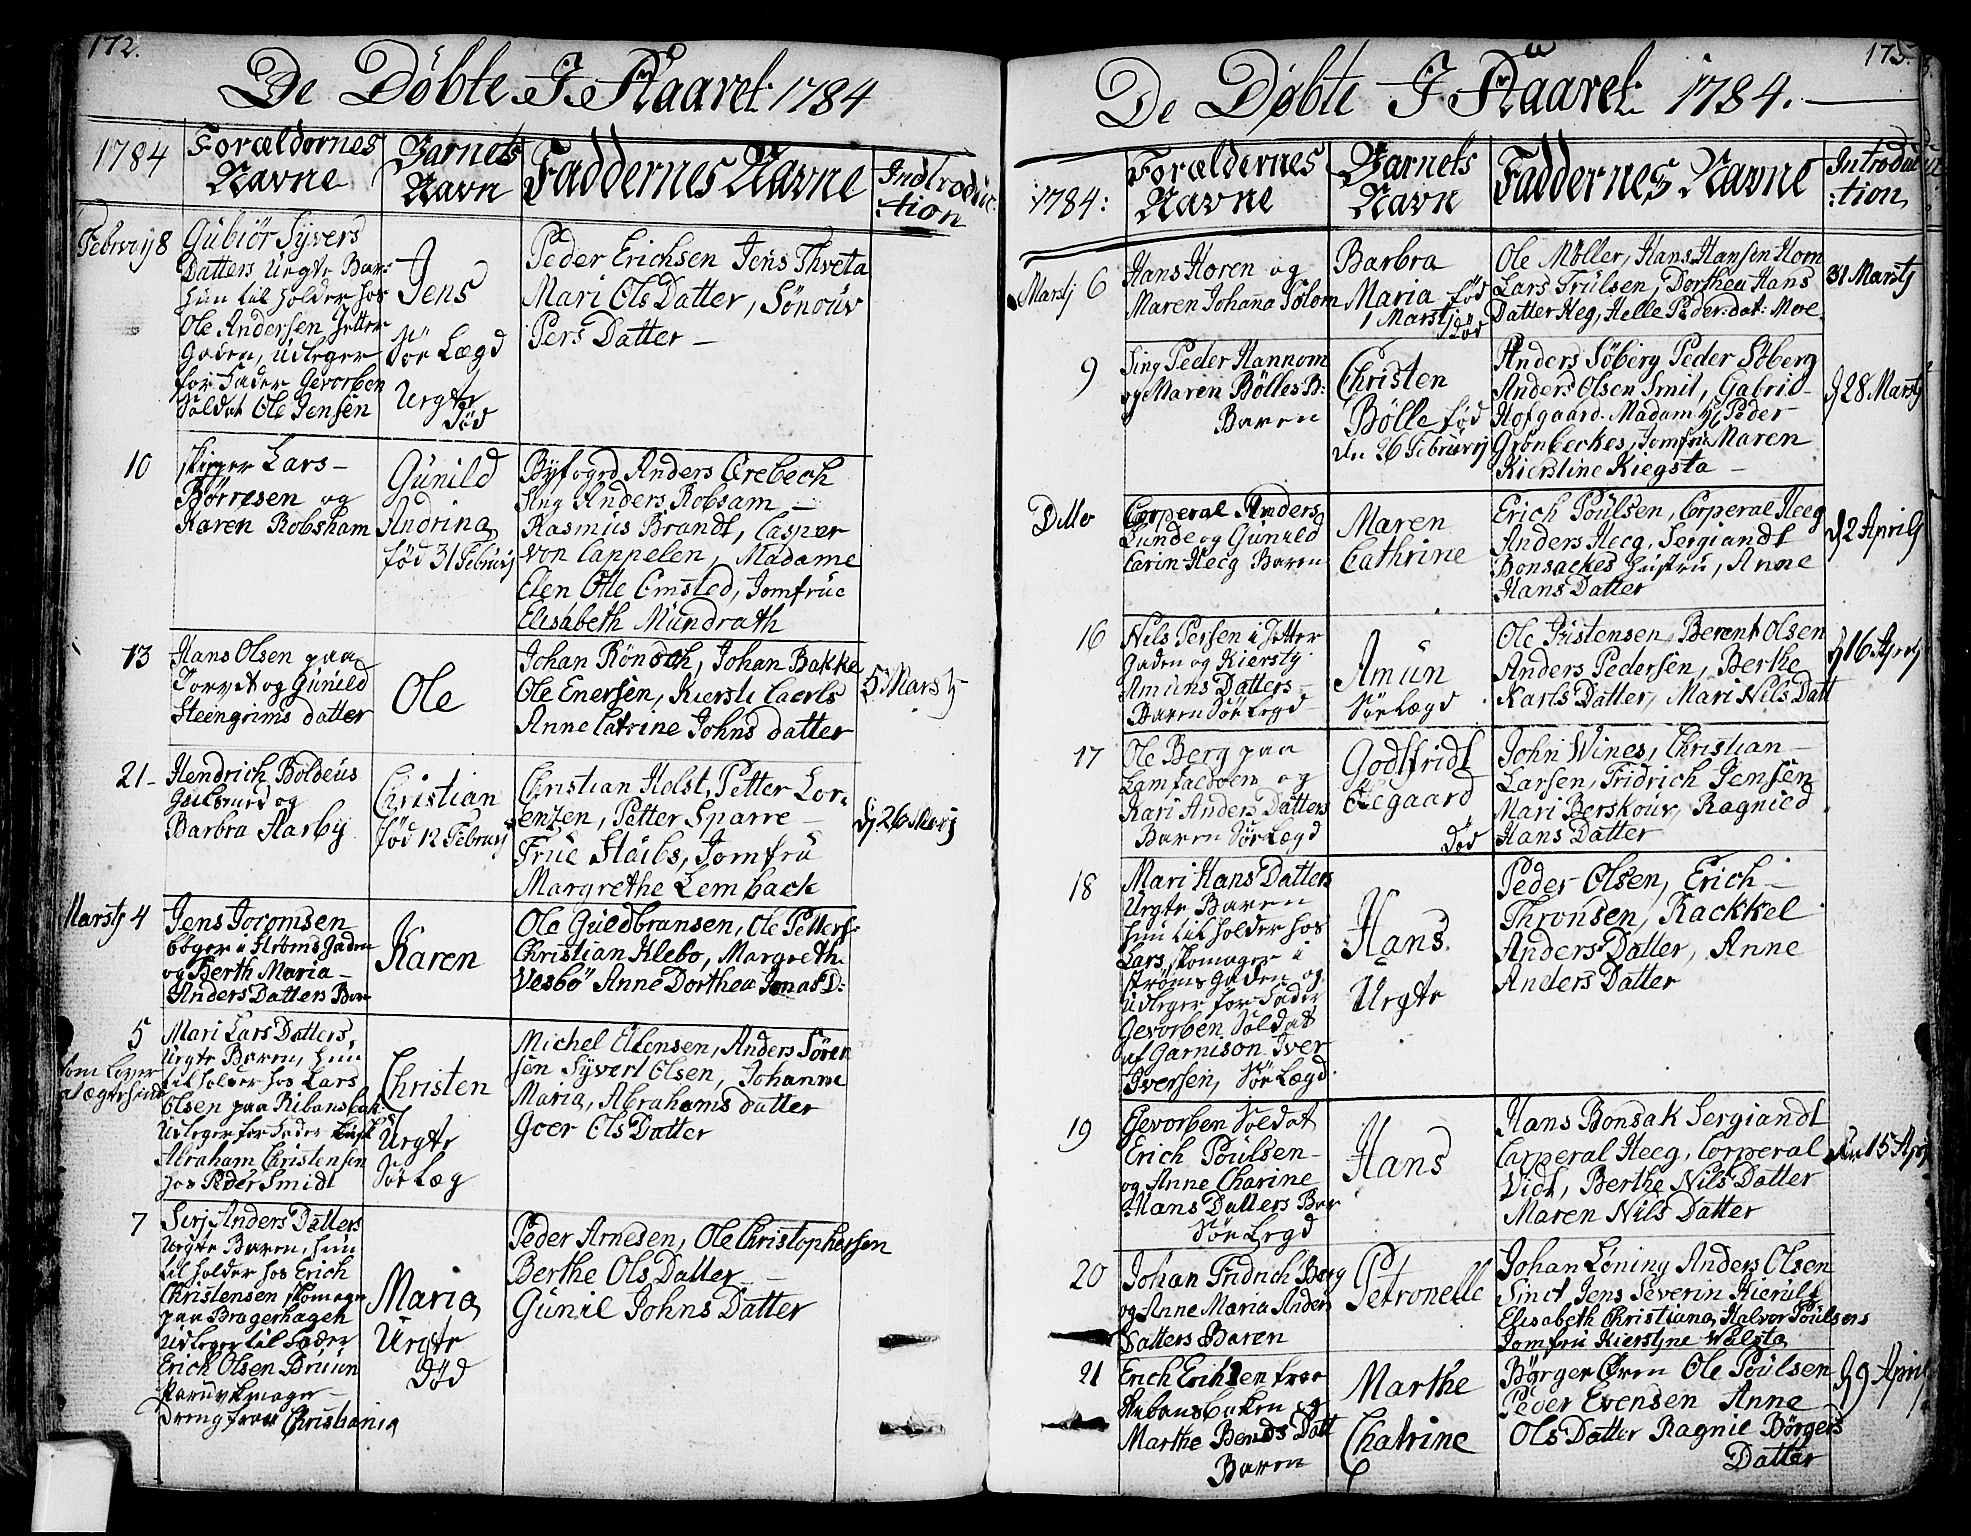 172.
De Döbte I Aaaret 1784
1784
Forældernes
Navne
Barnets
Navn
Faddernes Navne
Introduc
:tion
Februarj 8
Gubiör Syvers
Datters Uegte Barn
hun til holder hos
Ole Andersen Jetter
Gaden, Udleger
for Fader Gevorben
Soldat Ole Jensen
Jens
Sör Lægd
Uegte
Död
Peder Erichsen Jens Thveta
Mari Ols Datter, Sönouv
Pers Datter
10
skipper Lars
Börresen og
Karen Robsham
Gunild
Andrina
föd 31 Februarj
Byfogd Anders Crebech
Sing Anders Robsam
Rasmus Brandt, Casper
von Cappelen, Madame
Elen Olle Omsted, Jomfrue
Elisabeth Mundrath
13
Hans Olsen paa
Torvet og Gunild
Steengrims datter
Ole
Johan Rönsch, Johan Bakke
Ole Enersen, Kiersti Caerls
Anne Catrine Johns datter
5 Marstj
21
Hendrich Boldeus
Gulsmed og
Barbra Aarby
Christian
föd 12 Februarj
Christian Holst, Petter Lor
enzen, Petter Sparre
Frue Staibs, Jomfru
Margrethe Lemback
dj 26 Marj
Marstj 4
Jens Joromsen
böger i Ströms Gaden
og Berth Maria
Anders Datters Barn
Karen
Ole Guldbransen, Ole Petters
Christian Klebo, Margreth
Vesbö Anne Dorthea Jonas D:
5
som Lever
Mari Lars Datters,
Uegte Baren, hun
til holder hos Lars
Olsen paa Ribansbak
Udleger for Fader
Abraham Christensen
hos Peder Smidt
Christen
Uegte
Sör Læg
Michel Ellensen, Anders Sören
sen Syvert Olsen, Johanne
Maria, Abrahams datter
Goer Ols Datter
7
Serj Anders Datters
Uegte Baren, hun
til holder hos Erich
Christensen skomager
paa Bragerhagen
Udleger til Fader
Erich Olsen Bruun
Paruvkmager
Dreng fraa Christiania
Maria
Uegte
Död
Peder Arnesen, Ole Christophersen
Berthe Ols Datter
Gunil Johns Datter
175.
De Döbte I Aaaret 1784.
1784:
Forældernes
Navne
Barnets
Navn
Faddernes Navne
Introduc
:tion
Marstj 6
Hans Horen og
Maren Johanna Solom
Barbra
Maria föd
1 Marstj
död
Ole Möller, Hans Hansen Horn
Lars Trulsen, Dorthea Hans
Datter Heg, Helle Peder: dat: Moe
31 Marstj
9
Sing Peder Hannom
og Maren Bölles B:
Baren
Christen
Bölle föd
den 26 Februarij
Anders Söberg Peder Söberg
Anders Olsen Smit, Gabriel
Hofgaard. Madam Peder
Grönbeckes, Jomfru Maren
Kierstine Kiegsta
dj 28 Marstj
Ditto
Corperal Anders
Lunde og Gunild
Carin Heeg Baren
Maren
Cathrine
Erich Poulsen, Corperal Heeg
Anders Heeg, Sergiandt
Bonsackes Hustru, Anne
Hans Datter
dj 2 Aprilj
16
Nils Persen i Jetter
Gaden og Kiersty
Amuns Datters
Baren Sör Legd
Amun
Sör Lægd
Ole Kristensen, Berent Olsen
Anders Pedersen, Berthe
Karls Datter, Mari Nils Datt
dj 16 Aprj
17
Ole Berg paa
Lamfaldoen og
Kari Anders Datters
Baren Sör Lægd
Godtfridt
Olegaard
Död
John Wines, Christian
Larsen, Fridrich Jensen
Mari Berskouv, Ragnied
Hans Datter
18
Mari Hans Datters
Uegte Baren
hun til holder hos
Lars skomager i
Ströms Gaden og
Udleger for Fader
Gevorben Soldat
af Garnison Iver
Iversen, Sör Lægd
Hans.
Uegte
Peder Olsen, Erich
Thronsen, Rackkel
Anders Datter, Anne
Anders Datter
19
Gevorben Soldat
Erich Poulsen
og Anne Charine
Hans Datters Bar
Sör Legd
Hans
Hans Bonsak Sergiandt
Corperal Heeg, Corperal
Vidt, Berthe Nils Datter
Maren Nils Datter
den 15 Apr
20
Johan Fridrich Berg
og Anne Maria Anders
Datters Baren
Petronelle
Johan Löning Anders Olsen
Sinct Jens Severin Kierulf
Elisabeth Christiana, Halvor Poulsens
Jomfru Kierstyne Walsta
21
Erich Erichsen fraa
og
Marthe Bends Datt
Baren
Marthe
Chatrine
Börger Oven Ole Poulsen
Peder Evensen Anne
Ols Datter Ragnil Börgers
Datter
dj 9 April